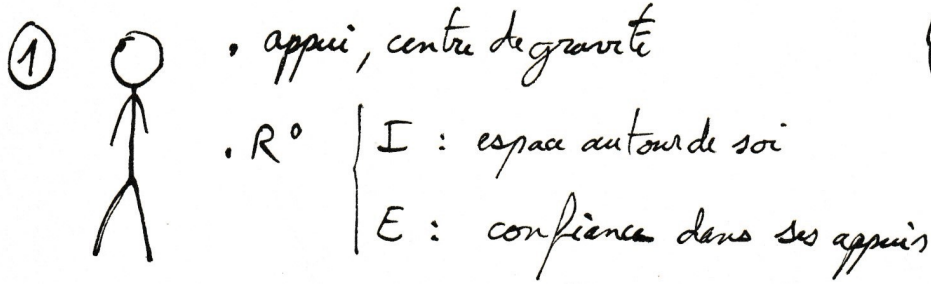 ① • appui, centre de gravité
• R° I : espace autour de soi
E : confiance dans ses appuis